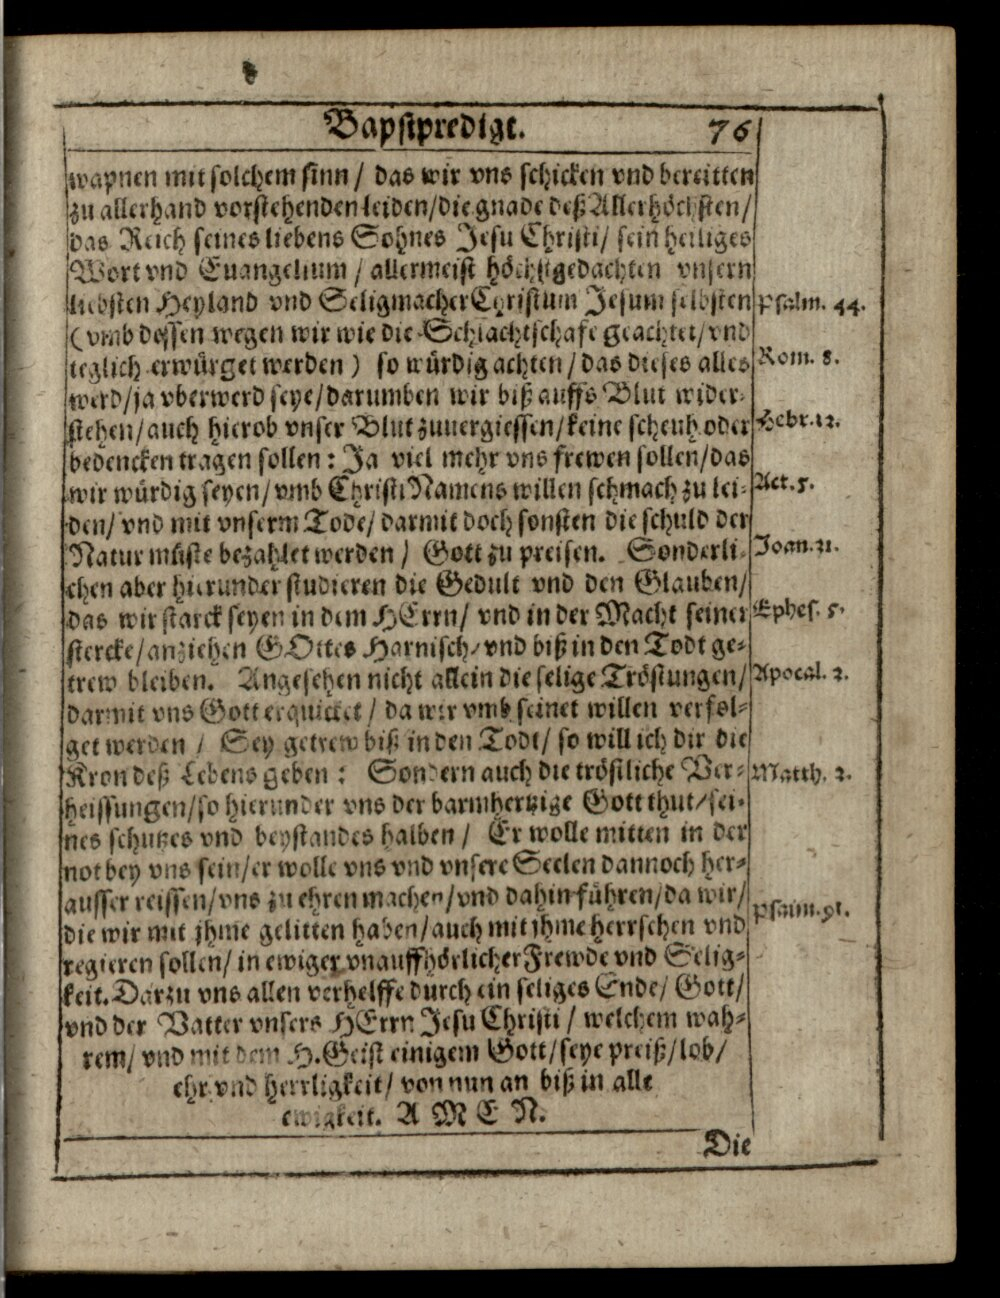 Bapstpredigt. 76
wapnen mit solchem sinn / das wir vns schicken vnd bereitten
zu allerhand vorstehenden leiden/die gnade deß Allerhöchsten/
das Reich seines liebens Sohnes Jesu Christi/ sein heiliges
Wort vnd Euangelium / allermeist höchstgedachten vnsern
liebsten Heyland vnd Seligmacher Christum Jesum selbsten
Psalm. 44.
(vmb dessen wegen wir wie die Schlachtschafe geachtet/vnd
teglich erwürget werden) so würdig achten/das dieses alles
Rom. 8.
werd/ja vberwerd seye/darumben wir biß auffs Blut wider-
stehen/auch hierob vnser Blut zuuergiessen/keine scheuh oder
Hebr.12.
bedencken tragen sollen: Ja viel mehr vns frewen sollen/das
wir würdig seyen/vmb Christi Namens willen schmach zu lei-
Act.5.
den/ vnd mit vnserm Tode/ darmit doch sonsten die schuld der
Natur müste bezahlet werden / Gott zu preisen. Sonderli-
Joan.21.
chen aber hierunder studieren die Gedult vnd den Glauben/
das wir starck seyen in dem HErrn/ vnd in der Macht seiner
Ephes. 5.
stercke/anziehen GOttes Harnisch/vnd biß in den Todt ge-
trew bleiben. Angesehen nicht allein die selige Tröstungen/
Apocal. 2.
darmit vns Gott erquicket / da wir vmb seinet willen verfol-
get werden / Sey getrew biß in den Todt/ so will ich dir die
Kron deß Lebens geben: Sondern auch die tröstliche Ver-
Matth. 2.
heissungen/so hierunder vns der barmhertzige Gott thut/sei-
nes schutzes vnd beystandes halben / Er wolle mitten in der
not bey vns sein/er wolle vns vnd vnsere Seelen dannoch her-
ausser reissen/vns zu ehren machen/vnd dahin führen/da wir/
Psalm.91.
die wir mit jhme gelitten haben/auch mit jhme herrschen vnd
regieren sollen/ in ewiger vnauffhörlicher Frewde vnd Selig-
keit. Darzu vns allen verhelffe durch ein seliges Ende/ Gott/
vnd der Vatter vnsers HErrn Jesu Christi / welchem wah-
rem/ vnd mit dem H. Geist einigem Gott/seye preiß/lob/
ehr vnd herrligkeit/ von nun an biß in alle
ewigkeit. A M E N.
Die